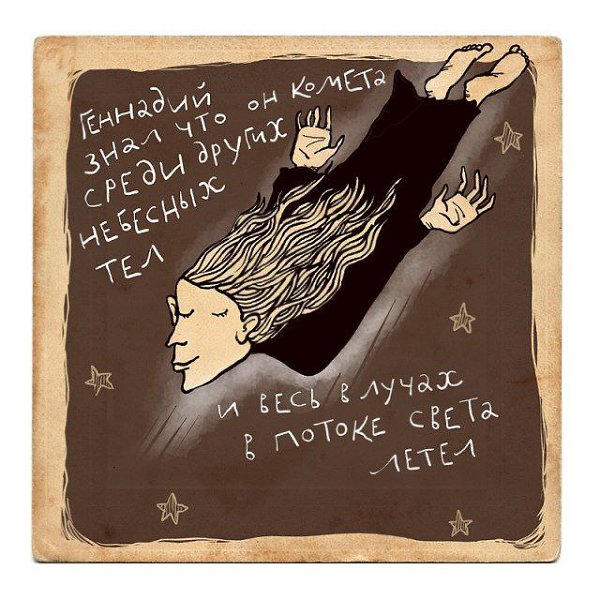 Геннадий
знал что он комета
среди других
небесных
тел
и весь в лучах
в потоке света
летел